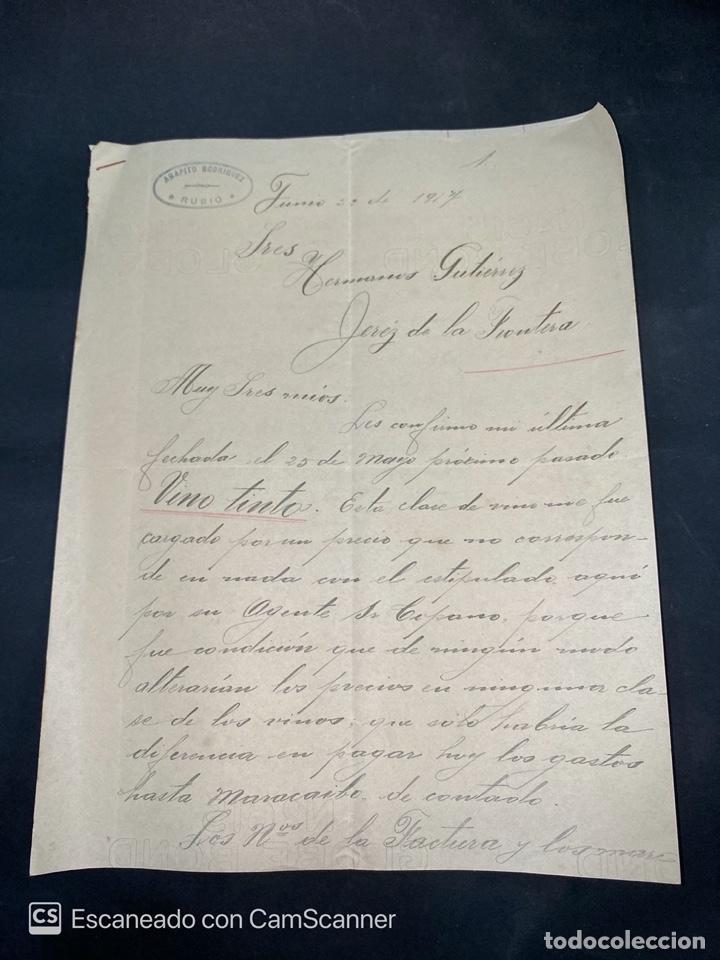 AGAPITO RODRIGUEZ
* RUBIO *
1.
Junio 22 de 1917
Sres
Hermanos Gutiérrez
Jeréz de la Frontera.
Muy Sres mios.
Les confirmo mi última
fechada el 25 de Mayo próximo pasado
Vino tinto. Esta clase de vino me fue
cargado por un precio que no correspon-
de en nada con el estipulado aquí
por su Agente Sr Copano, porque
fue condición que de ningún modo
alterarían los precios en ninguna cla-
se de los vinos, que sólo habría la
diferencia en pagar hoy los gastos
hasta Maracaibo de contado.
Los Nos de la Factura y los mar-
CS Escaneado con CamScanner
todocoleccion